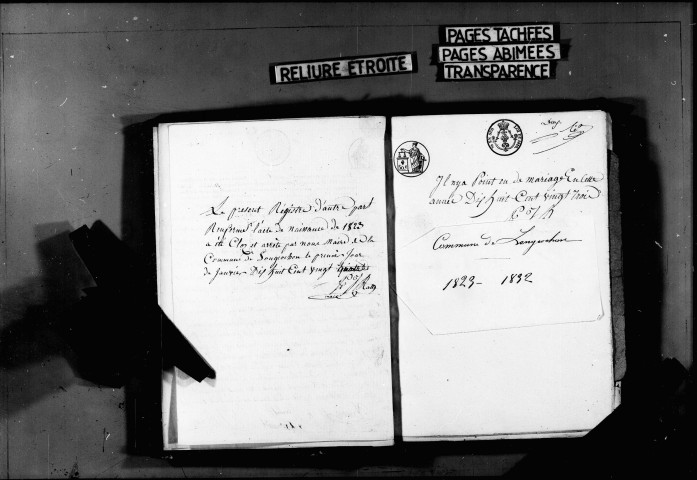 PAGES TACHÉES
PAGES ABIMÉES
TRANSPARENCE
RELIURE ETROITE
Le présent Registre d'autre part
Renfermé l'acte de naissance de 1823
a été Clos et arrêté par nous Maire de la
Commune de Longuechon le premier Jour
de Janvier Dix huit Cent vingt quatre
Maire
Il nya Point eu de mariage En cette
année Dix huit Cent vingt trois
Commune de
1823 - 1832